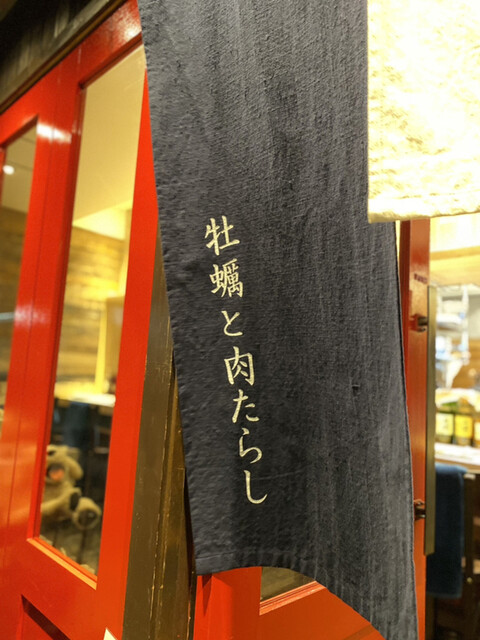 牡蠣と肉たらし